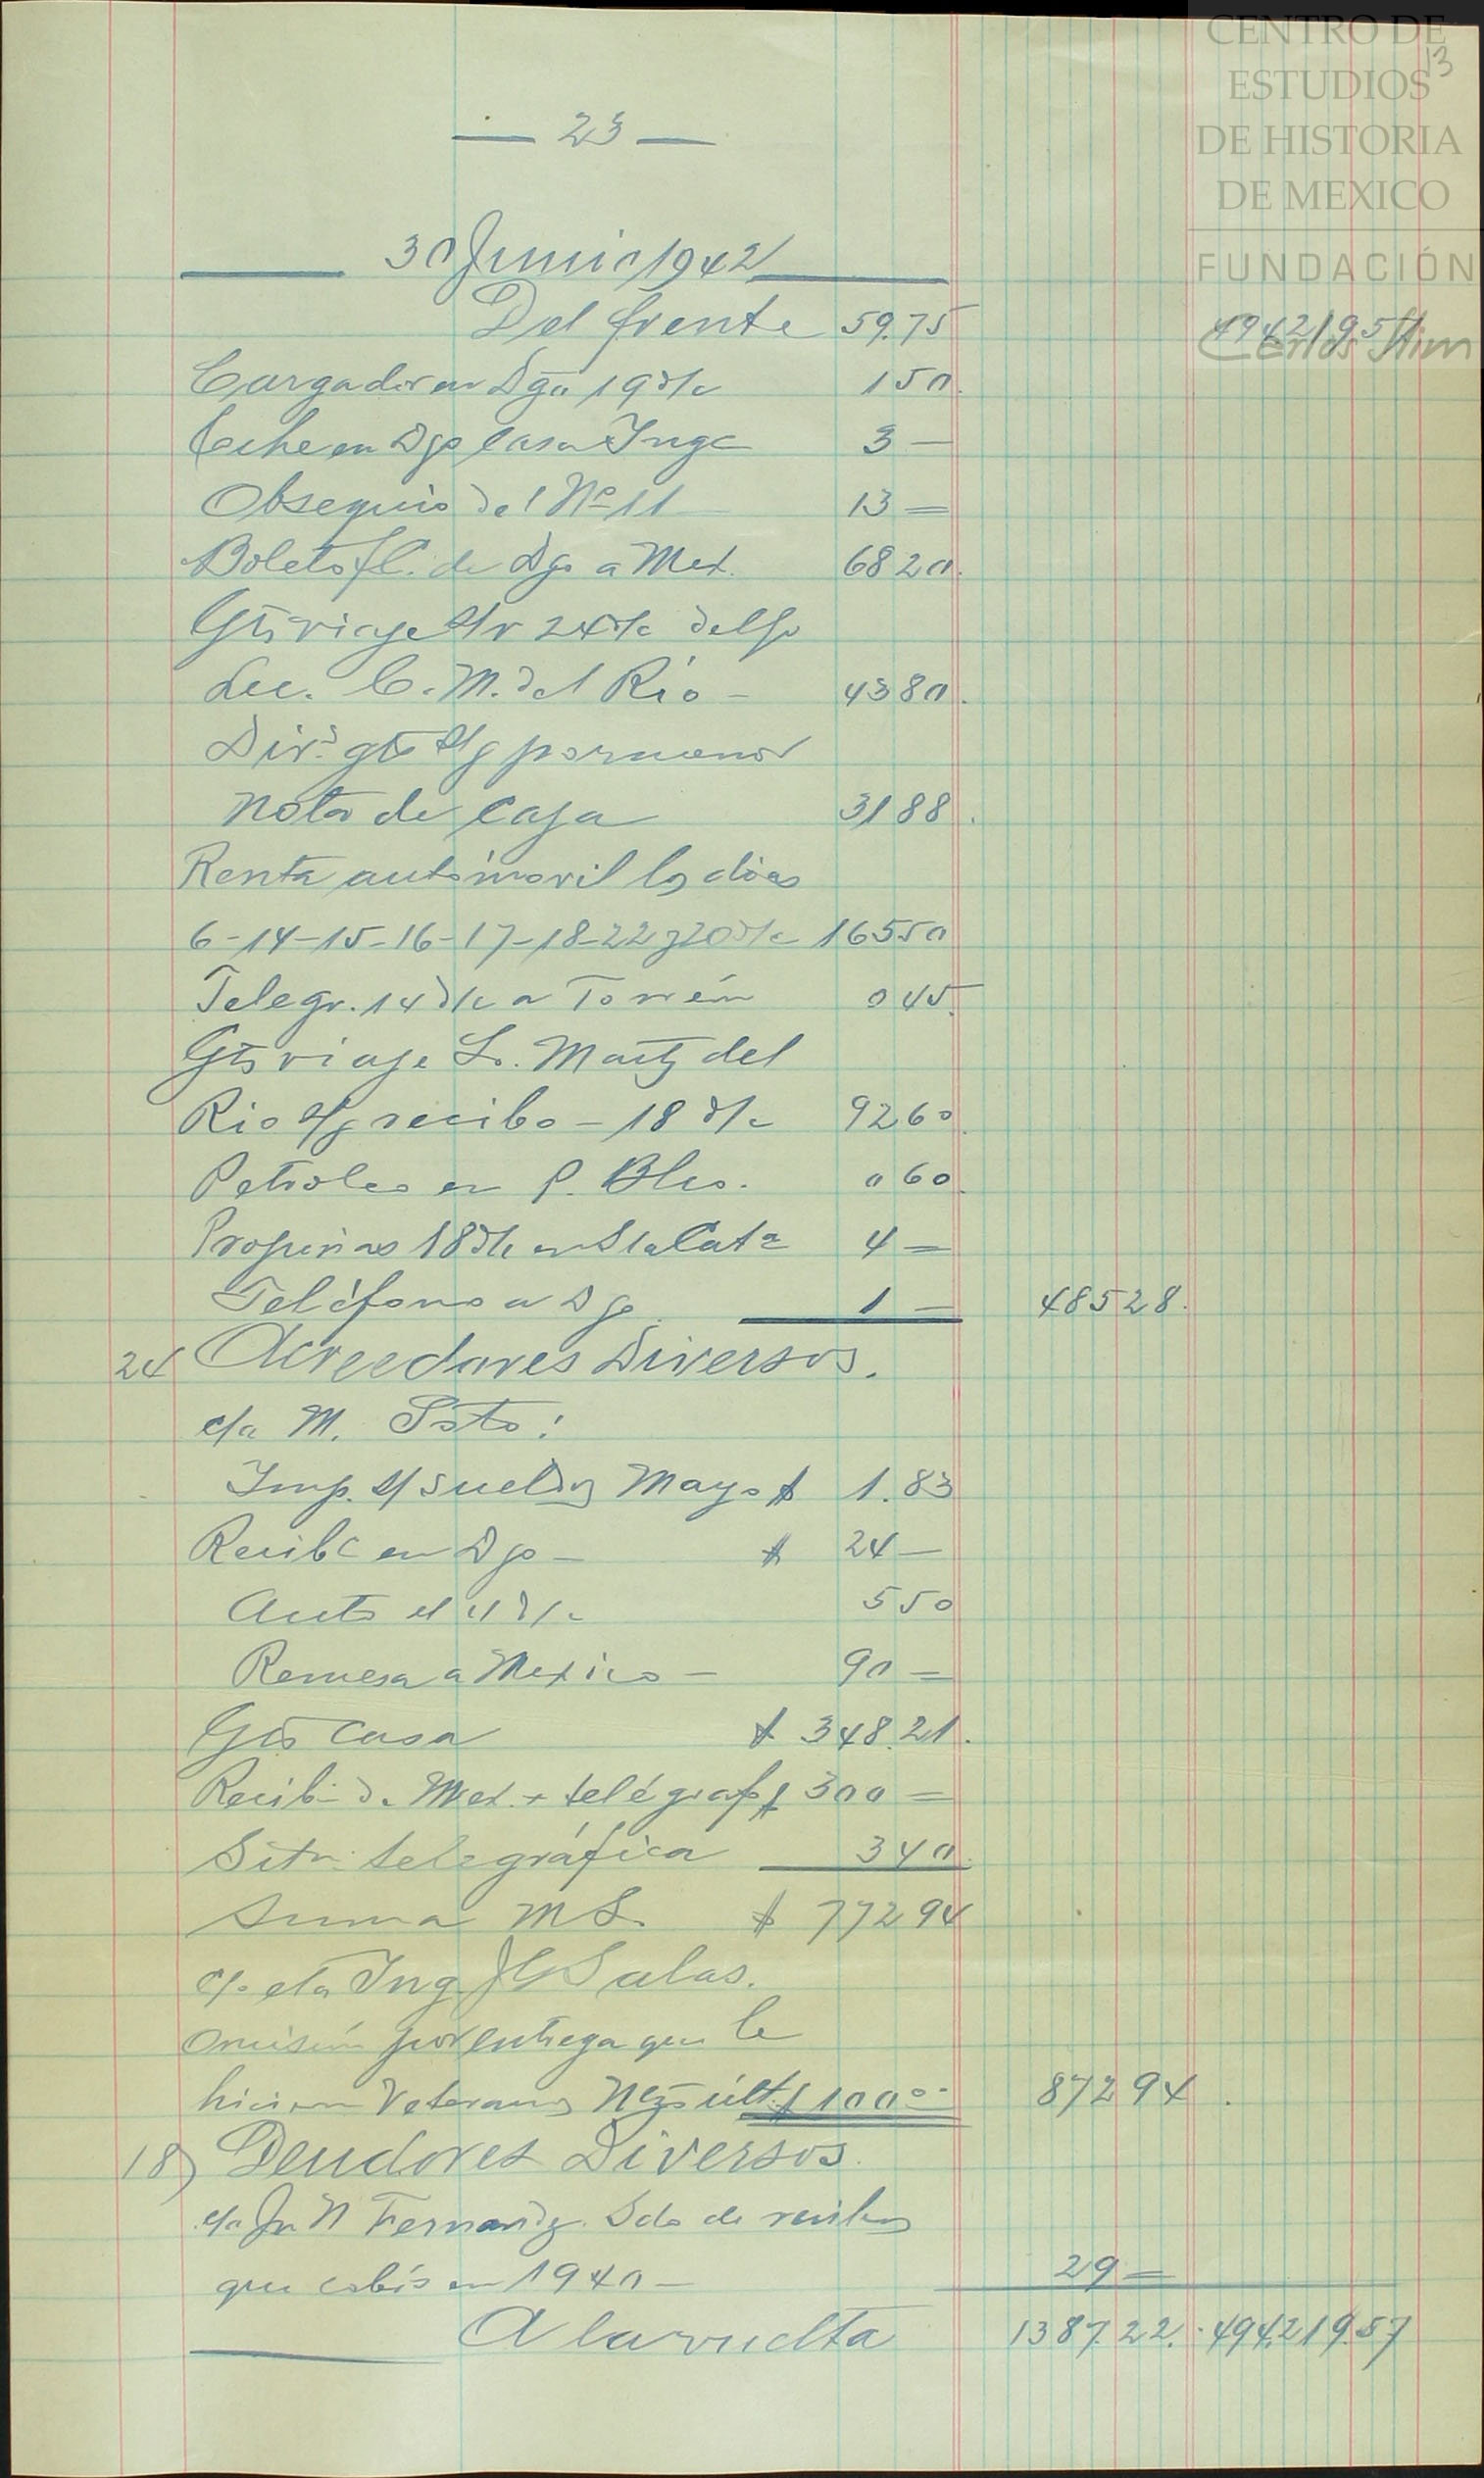 CENTRO DE
ESTUDIOS
DE HISTORIA
DE MEXICO
FUNDACIÓN
Carlos Slim
13
— 23 —
30 Junio 1942
Del frente 59.75 494219.57
Cargador en Dgo 19 d/c 1 50.
Coche en Dgo Casa Ingo 3 —
Obsequio del Nº 11 13 =
Boleto f.C. de Dgo a Mex. 68 20.
Gts viaje s/r 24 d/c del Sr
Lic. C. M. del Río — 43 80.
Divs gts s/g pormenor
nota de Caja 31 88.
Renta automovil los dias
6-14-15-16-17-18-22 y 20 d/c 165 50
Telegr. 14 d/c a Torreón 0 45.
Gts viaje L. Martz del
Rio s/g recibo — 18 d/c 92 60.
Petroleo en P. Blco. 0 60.
Propinas 18 d/c en Sta Cata 4 =
Teléfono a Dgo 1 — 485 28.
24 Acreedores Diversos.
cta M. Soto:
Imp. s/ sueldos Mayo $ 1.83
Recibi en Dgo — $ 24 —
Auto el 11 d/c 5 50
Remesa a Mexico — 90 =
Gts Casa $ 348.21.
Recibi d. Mex. x telégrafo $ 300 =
Sitn. telegráfica 3 40.
Suma M S. $ 772 94
c/. cta Ing. J G Salas.
omisión por entrega que le
hicieron Veteranos Mzo últ. $ 100 00 872 94.
18) Deudores Diversos.
cta Jn N Fernandz. Sdo de recibos
que cobró en 1940 — 29 =
A la vuelta 1387.22. 494,219.57